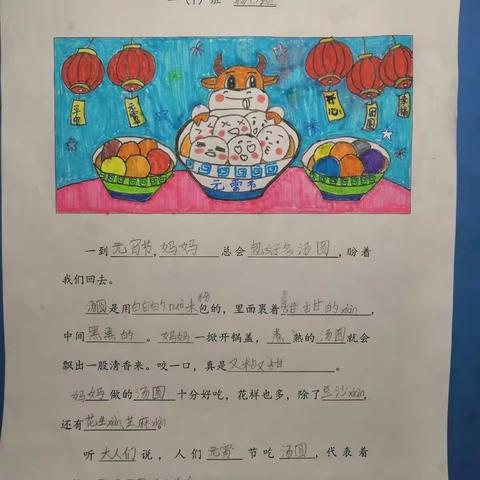 一（1）班
平安
元宵
开心
团圆
元宵节
一到元宵节，妈妈总会包好多汤圆，盼着
我们回去。
汤圆是用白白的nuò米粉包的，里面裹着甜甜的xiàn，
中间黑黑的。妈妈一掀开锅盖，煮熟的汤圆就会
飘出一股清香来。咬一口，真是又粘又甜。
妈妈做的汤圆十分好吃，花样也多，除了豆沙xiàn，
还有花生xiàn芝麻xiàn
听大人们说，人们元宵节吃汤圆，代表着